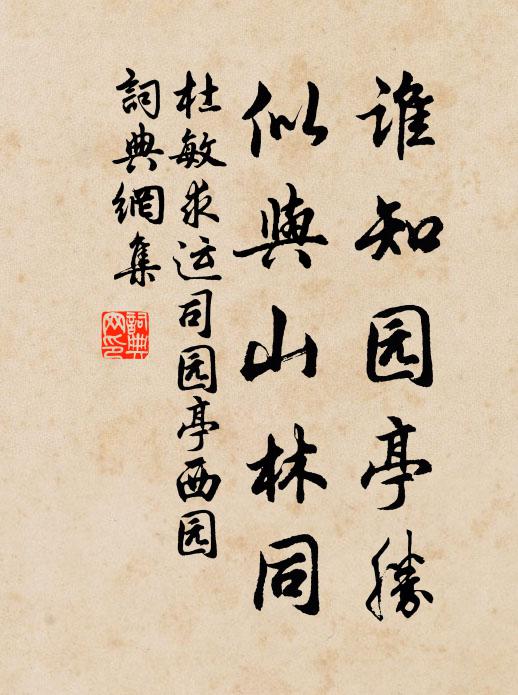 谁知园亭勝
似與山林同
杜敏求运司园亭西园
詞典網集
詞典网印